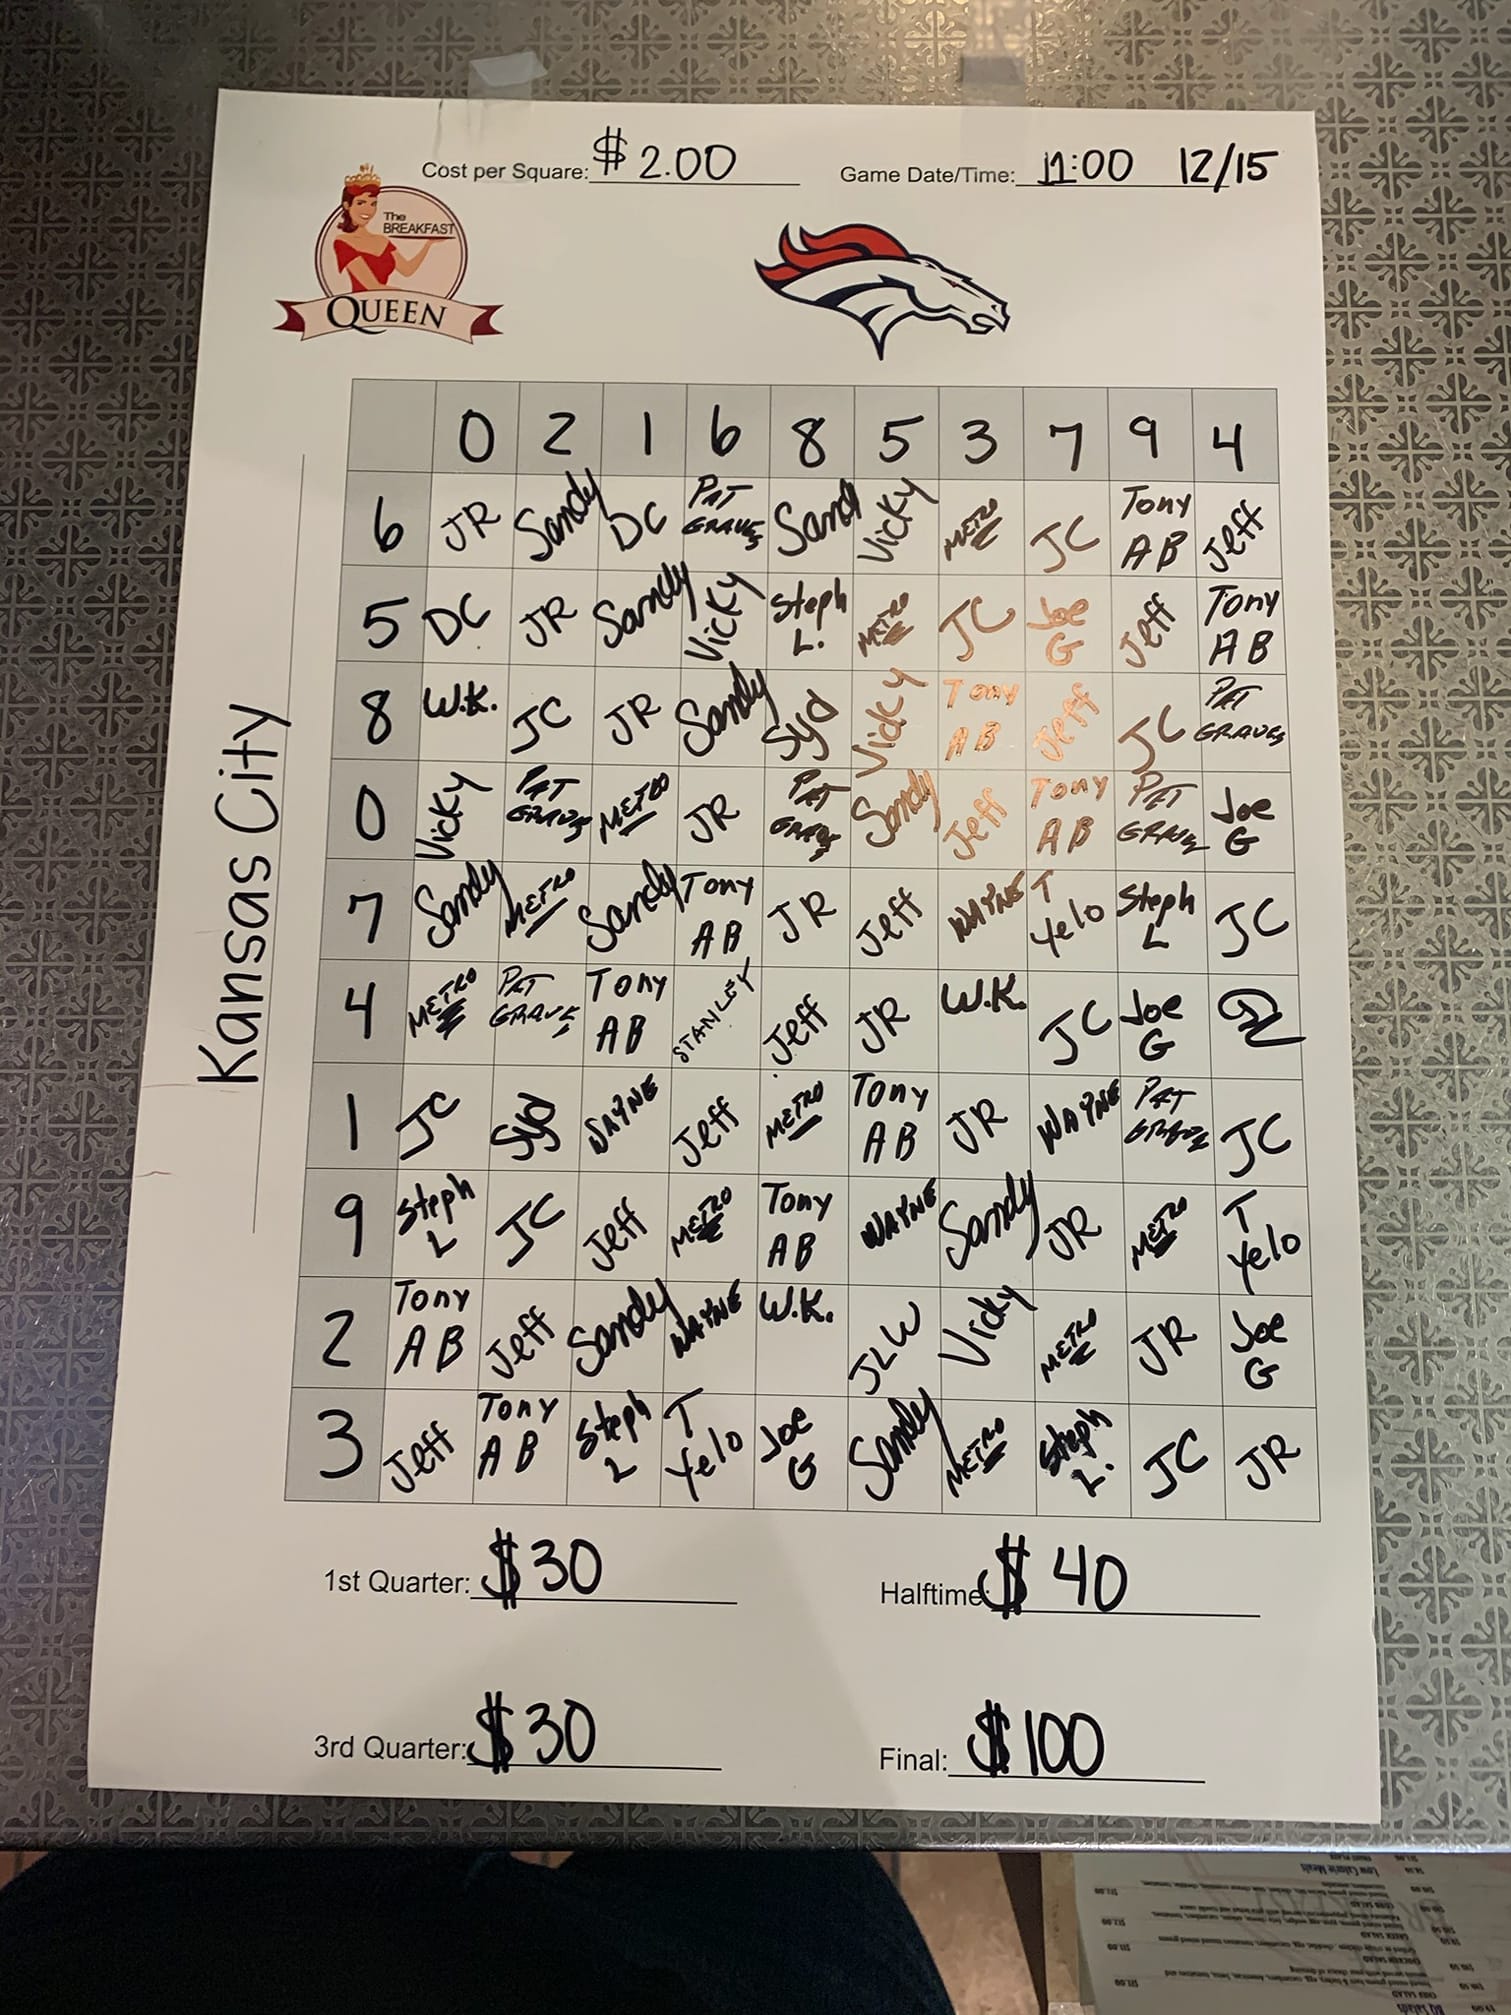 Cost per Square: $ 2.00 Game Date/Time: 11:00 12/15
The
BREAKFAST
QUEEN
Kansas City
0 2 1 6 8 5 3 7 9 4
6 JR Sandy DC PAT GRAVES Sandy Vicky METRO JC Tony AB Jeff
5 DC JR Sandy Vicky Steph L. METRO JC Joe G Jeff Tony AB
8 W.K. JC JR Sandy Syd Vicky Tony AB Jeff JC PAT GRAVES
0 Vicky PAT GRAVES METRO JR PAT GRAVES Sandy Jeff Tony AB PAT GRAVES Joe G
7 Sandy METRO Sandy Tony AB JR Jeff WAYNE T Yelo Steph L JC
4 METRO PAT GRAVES Tony AB STANLEY Jeff JR W.K. JC Joe G
1 JC Syd WAYNE Jeff METRO Tony AB JR WAYNE PAT GRAVES JC
9 Steph L JC Jeff METRO Tony AB WAYNE Sandy JR METRO T Yelo
2 Tony AB Jeff Sandy WAYNE W.K. JLW Vicky METRO JR Joe G
3 Jeff Tony AB Steph L T Yelo Joe G Sandy METRO Steph L. JC JR
1st Quarter: $30 Halftime: $40
3rd Quarter: $30 Final: $100